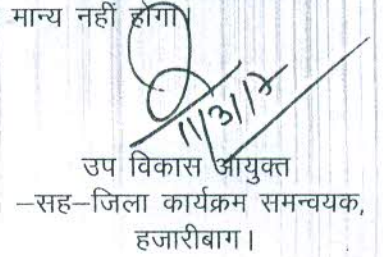 मान्य नहीं होगा।
11/3/17
उप विकास आयुक्त
–सह–जिला कार्यक्रम समन्वयक,
हजारीबाग।